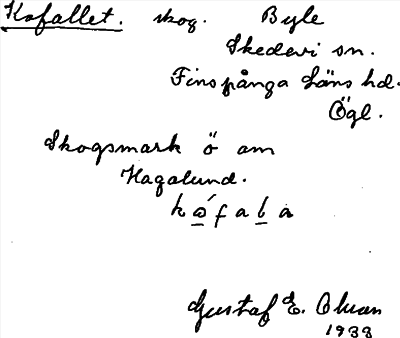 Kofallet. skog. Byle
Skedevi sn.
Finspånga Läns hd.
Ögl.
Skogsmark ö om
Hagalund.
Gustaf E.
1933